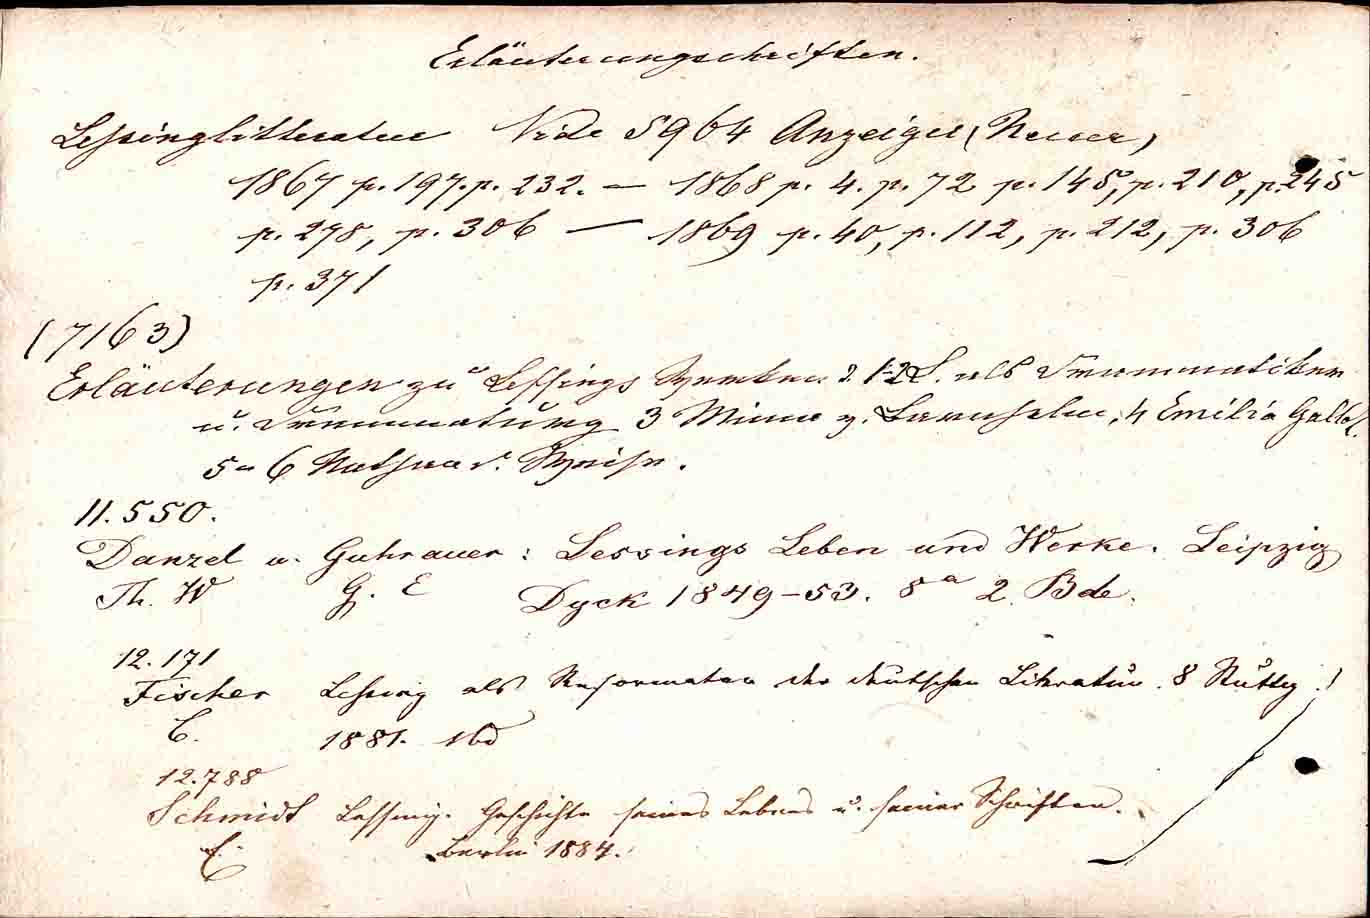 Erläuterungschriften.
Lessinglitteratur Vide 5964 Anzeiger (Neuer)
1867 p. 197. p. 232. — 1868 p. 4. p. 72 p. 145, p. 210, p. 245
p. 278, p. 306 — 1869 p. 40, p. 112, p. 212, p. 306
p. 371
(7163)
Erläuterungen zu Lessings Werken 1-2 L. als Dramatiker
u. Dramaturg 3 Minna v. Barnhelm, 4 Emilia Galot.
5 u 6 Nathan d. Weise.
11.550.
Danzel u. Guhrauer: Lessings Leben und Werke. Leipzig
Th. W G. E Dyck 1849-53. 8° 2 Bde.
12.171
Fischer Lessing als Reformator der deutschen Literatur. 8 Stuttg.
C. 1881. 1bd
12.788
Schmidt Lessing. Geschichte seines Lebens u. seiner Schriften.
E. Berlin 1884.